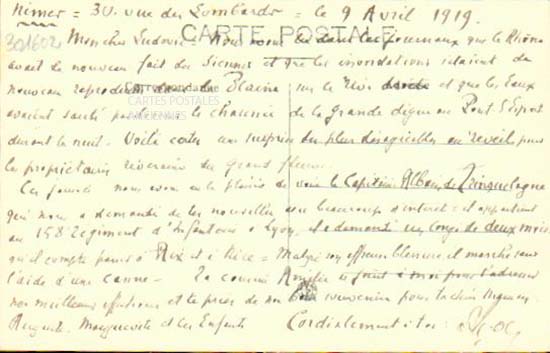 Nimes = 30. rue des Lombards = le 9 Avril 1919.
CARTE POSTALE
301602
Mon cher Ludovic = Nous avons lu dans les journaux que le Rhône
avait de nouveau fait des siennes et que les inondations s'étaient de
nouveau reproduites dans la Plaine sur la rive droite et que les eaux
Correspondance
CARTES POSTALES
ANCIENNES
avaient sauté par dessus la chaussée de la grande digue au Pont S. Esprit
durant la nuit. Voilà certes une surprise des plus désagréables au réveil pour
les propriétaires riverains du grand fleuve.
Ces jours ci nous avons eu le plaisir de voir le Capitaine Alban de Trinquelague
qui nous a demandé de tes nouvelles avec beaucoup d'intérêt = il appartient
au 158 Régiment d'Infanterie à Lyon, il a demandé un congé de deux mois
qu'il compte passer à Aix et à Nice = Malgré son affreuse blessure il marche sans
l'aide d'une canne = Ta cousine Amélie se joint à moi pour t'adresser
nos meilleures affections et te prier de nos bons souvenirs pour
Auguste, Marguerite et les Enfants Cordialement à toi :